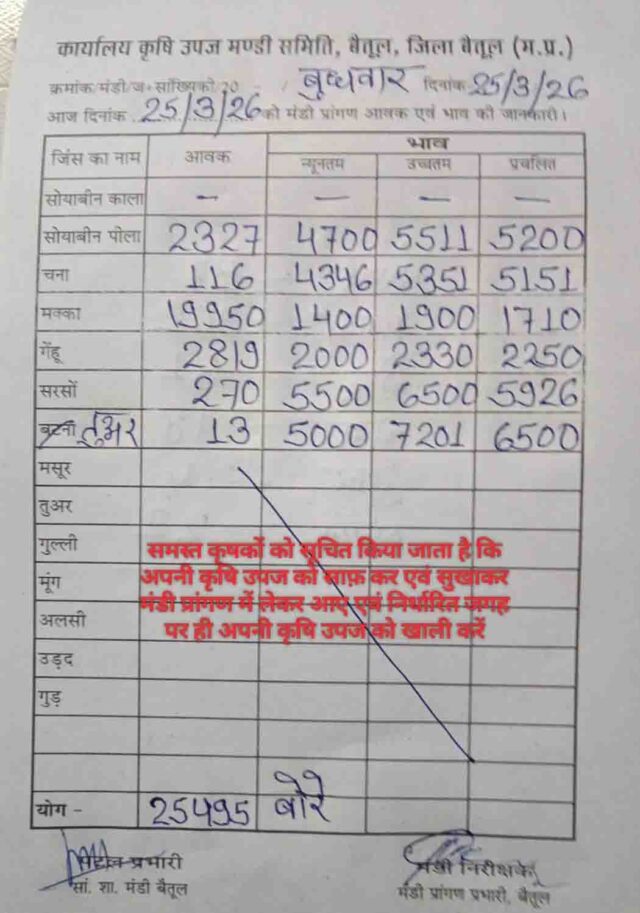 कार्यालय कृषि उपज मण्डी समिति, बैतूल, जिला बैतूल (म.प्र.)
क्रमांक/मंडी/ज+सांख्यिकी/20 / बुधवार दिनांक 25/3/26
आज दिनांक 25/3/26 को मंडी प्रांगण आवक एवं भाव की जानकारी।
जिंस का नाम आवक भाव
न्यूनतम उच्चतम प्रचलित
सोयाबीन काला - - - -
सोयाबीन पीला 2327 4700 5511 5200
चना 116 4346 5351 5151
मक्का 19950 1400 1900 1710
गेंहू 2819 2000 2330 2250
सरसों 270 5500 6500 5926
बटना तुअर 13 5000 7201 6500
मसूर
तुअर
गुल्ली
मूंग
अलसी
उड़द
गुड़
समस्त कृषकों को सूचित किया जाता है कि
अपनी कृषि उपज को साफ़ कर एवं सुखाकर
मंडी प्रांगण में लेकर आए एवं निर्धारित जगह
पर ही अपनी कृषि उपज को खाली करें
योग - 25495 बोरे
प्रभारी
सां. शा. मंडी बैतूल
मंडी निरीक्षक
मंडी प्रांगण प्रभारी, बैतूल